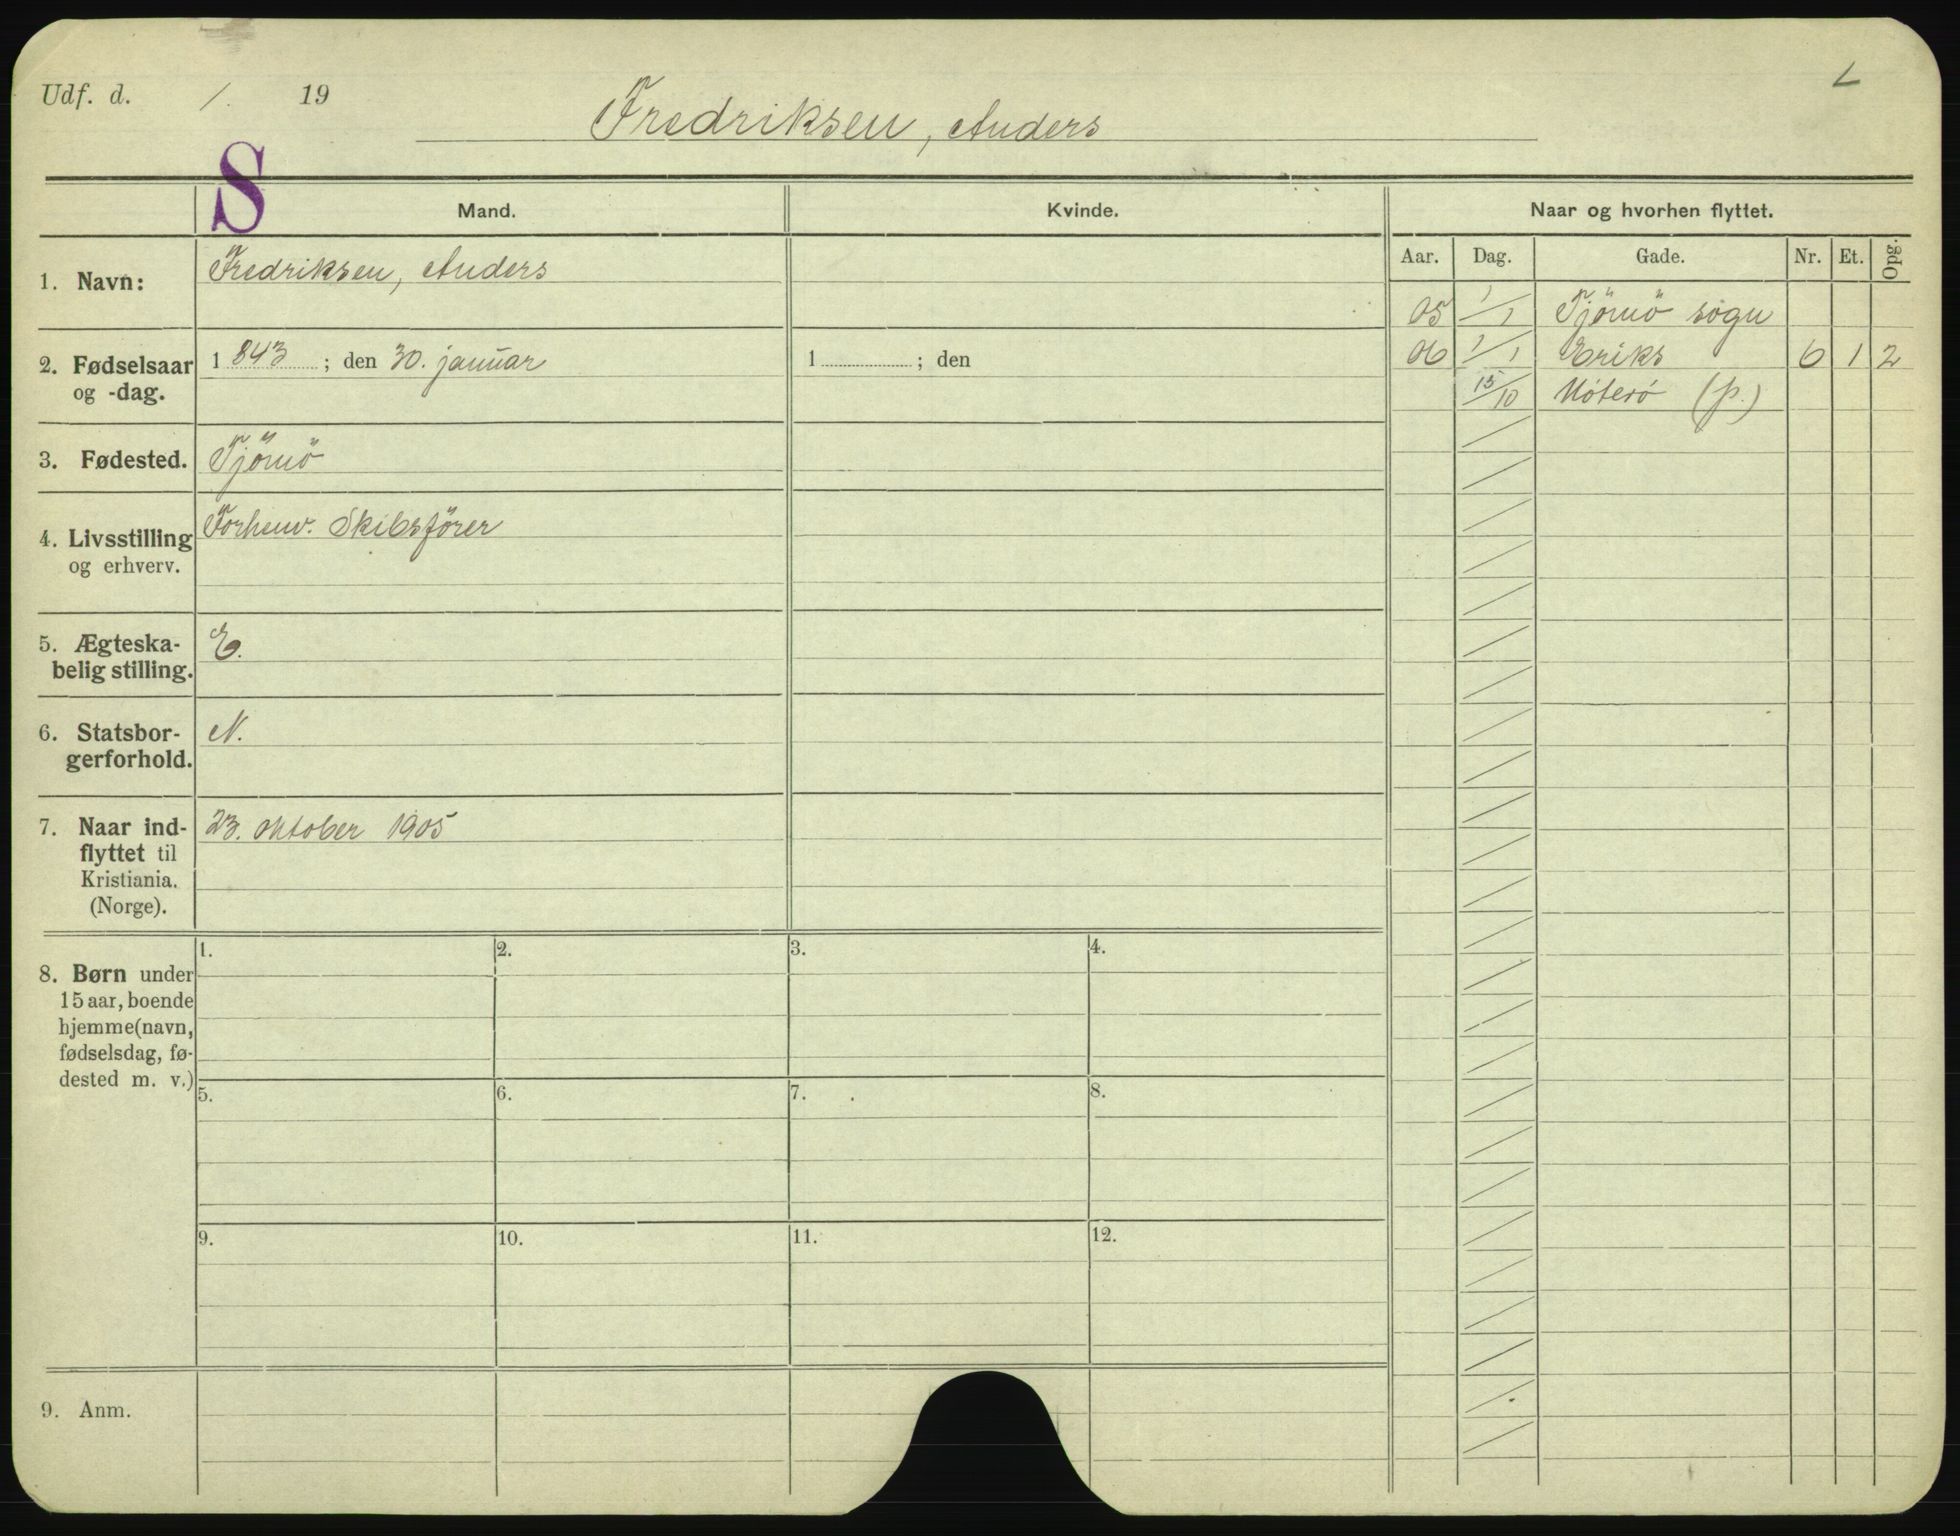 Udf. d. / . 19
Fredriksen, Anders
S
Mand.
Kvinde.
Naar og hvorhen flyttet.
Aar. Dag. Gade. Nr. Et. Opg.
05 1/1 Tjömö sogn
06 1/1 Eriks 6 1 2
15/10 Nöterö (p.)
1. Navn: Fredriksen, Anders
2. Fødselsaar og -dag.
1843; den 30. januar
1 ; den
3. Fødested. Tjömö
4. Livsstilling og erhverv.
Forhenv. Skibsförer
5. Ægteska-
belig stilling.
E.
6. Statsbor-
gerforhold.
N.
7. Naar ind-
flyttet til
Kristiania.
(Norge).
23. oktober 1905
8. Børn under
15 aar, boende
hjemme(navn,
fødselsdag, fø-
dested m. v.)
1. 2. 3. 4.
5. 6. 7. 8.
9. 10. 11. 12.
9. Anm.